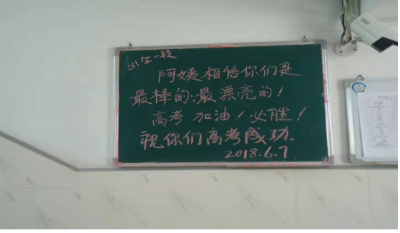 阿姨相信你们是
最棒的,最漂亮的!
高考加油!必胜!
祝你们高考成功.
2018.6.7.